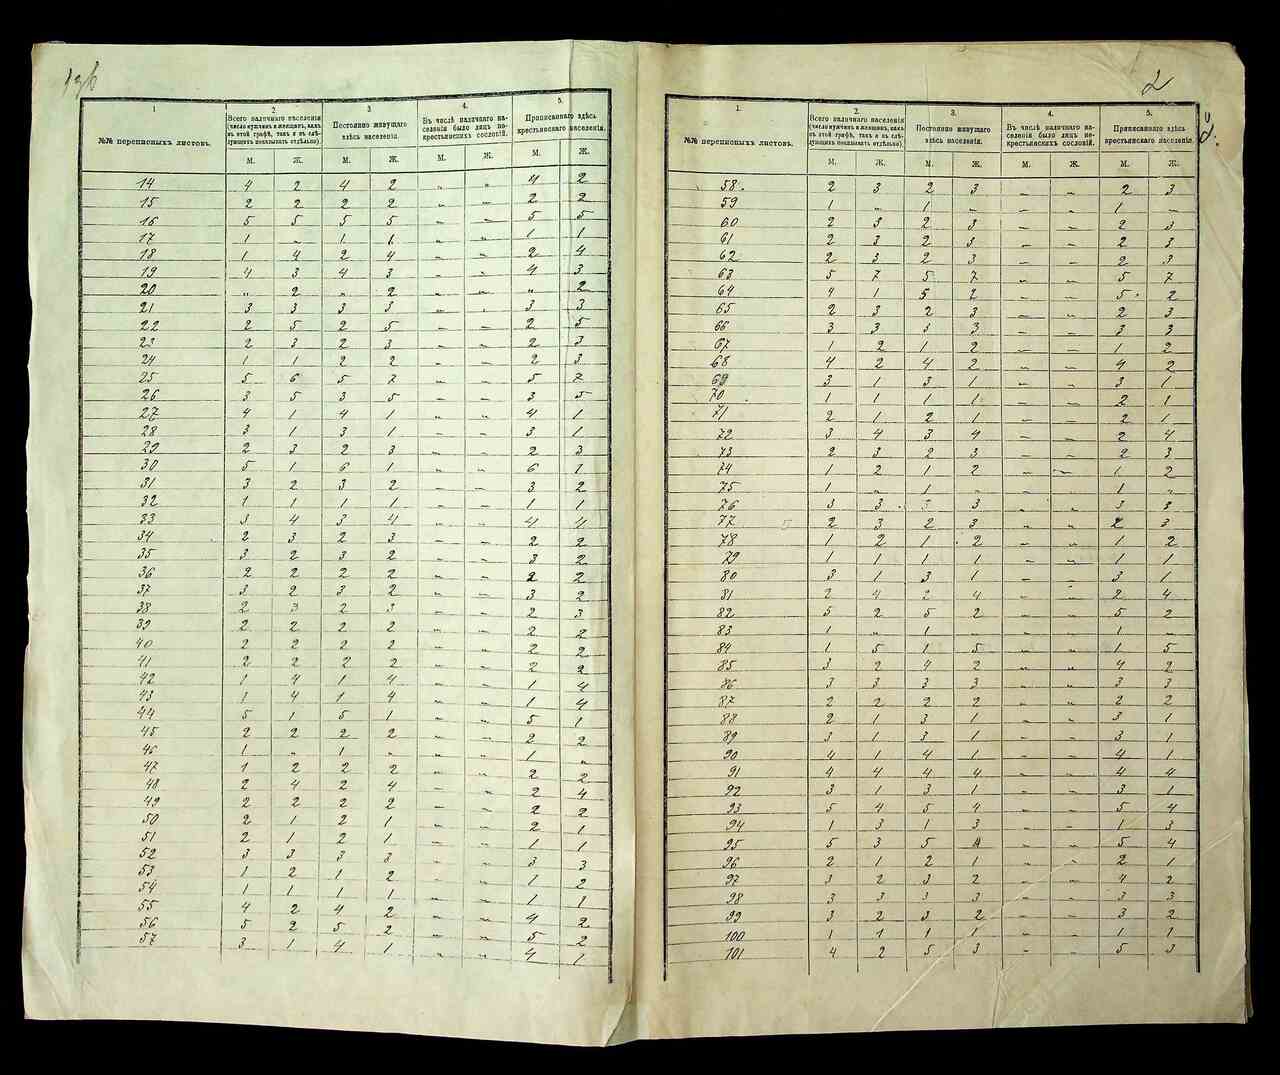 2
1
2.
3.
4.
5.
№№ переписныхъ листовъ.
Всего наличнаго населенія (число мужчинъ и женщинъ, какъ въ этой графѣ, такъ и въ слѣдующихъ показывать отдѣльно).
Постоянно живущаго здѣсь населенія
Въ числѣ наличнаго населенія было лицъ некрестьянскихъ сословій.
Приписаннаго здѣсь крестьянскаго населенія.
М. Ж. М. Ж. М. Ж. М. Ж.
14 4 2 4 2 „ „ 4 2
15 2 2 2 2 „ „ 2 2
16 5 5 5 5 „ „ 5 5
17 1 „ 1 1 „ „ 1 1
18 1 4 2 4 „ „ 2 4
19 4 3 4 3 „ „ 4 3
20 „ 2 „ 2 „ „ „ 2
21 3 3 3 3 „ „ 3 3
22 2 5 2 5 „ „ 2 5
23 2 3 2 3 „ „ 2 3
24 1 1 2 2 „ „ 2 3
25 5 6 5 7 „ „ 5 7
26 3 5 3 5 „ „ 3 5
27 4 1 4 1 „ „ 4 1
28 3 1 3 1 „ „ 3 1
29 2 3 2 3 „ „ 2 3
30 5 1 6 1 „ „ 6 1
31 3 2 3 2 „ „ 3 2
32 1 1 1 1 „ „ 1 1
33 3 4 3 4 „ „ 4 4
34 2 3 2 3 „ „ 2 2
35 3 2 3 2 „ „ 3 2
36 2 2 2 2 „ „ 2 2
37 3 2 3 2 „ „ 3 2
38 2 3 2 3 „ „ 2 3
39 2 2 2 2 „ „ 2 2
40 2 2 2 2 „ „ 2 2
41 2 2 2 2 „ „ 2 2
42 1 4 1 4 „ „ 1 4
43 1 4 1 4 „ „ 1 4
44 5 1 5 1 „ „ 5 1
45 2 2 2 2 „ „ 2 2
46 1 „ 1 „ „ „ 1 „
47 1 2 2 2 „ „ 2 2
48 2 4 2 4 „ „ 2 4
49 2 2 2 2 „ „ 2 2
50 2 1 2 1 „ „ 2 1
51 2 1 2 1 „ „ 1 1
52 3 3 3 3 „ „ 3 3
53 1 2 1 2 „ „ 1 2
54 1 1 1 1 „ „ 1 1
55 4 2 4 2 „ „ 4 2
56 5 2 5 2 „ „ 5 2
57 3 1 4 1 „ „ 4 1
1.
2.
3.
4.
5.
№№ переписныхъ листовъ.
Всего наличнаго населенія (число мужчинъ и женщинъ, какъ въ этой графѣ, такъ и въ слѣдующихъ показывать отдѣльно).
Постоянно живущаго здѣсь населенія.
Въ числѣ наличнаго населенія было лицъ некрестьянскихъ сословій.
Приписаннаго здѣсь крестьянскаго населенія
М. Ж. М. Ж. М. Ж. М. Ж.
58. 2 3 2 3 „ „ 2 3
59 1 „ 1 „ „ „ 1 „
60 2 3 2 3 „ „ 2 3
61 2 3 2 3 „ „ 2 3
62 2 3 2 3 „ „ 2 3
63 5 7 5 7 „ „ 5 7
64 4 1 5 2 „ „ 5 2
65 2 3 2 3 „ „ 2 3
66 3 3 3 3 „ „ 3 3
67 1 2 1 2 „ „ 1 2
68 4 2 4 2 „ „ 4 2
69 3 1 3 1 „ „ 3 1
70 1 1 1 1 „ „ 2 1
71 2 1 2 1 „ „ 2 1
72 3 4 3 4 „ „ 2 4
73 2 3 2 3 „ „ 2 3
74 1 2 1 2 „ „ 1 2
75 1 „ 1 „ „ „ 1 „
76 3 3 3 3 „ „ 3 3
77 2 3 2 3 „ „ 2 3
78 1 2 1 2 „ „ 1 2
79 1 1 1 1 „ „ 1 1
80 3 1 3 1 „ „ 3 1
81 2 4 2 4 „ „ 2 4
82 5 2 5 2 „ „ 5 2
83 1 „ 1 „ „ „ 1 „
84 1 5 1 5 „ „ 1 5
85 3 2 4 2 „ „ 4 2
86 3 3 3 3 „ „ 3 3
87 2 2 2 2 „ „ 2 2
88 2 1 3 1 „ „ 3 1
89 3 1 3 1 „ „ 3 1
90 4 1 4 1 „ „ 4 1
91 4 4 4 4 „ „ 4 4
92 3 1 3 1 „ „ 3 1
93 5 4 5 4 „ „ 5 4
94 1 3 1 3 „ „ 1 3
95 5 3 5 4 „ „ 5 4
96 2 1 2 1 „ „ 2 1
97 3 2 3 2 „ „ 4 2
98 3 3 3 3 „ „ 3 3
99 3 2 3 2 „ „ 3 2
100 1 1 1 1 „ „ 1 1
101 4 2 5 3 „ „ 5 3